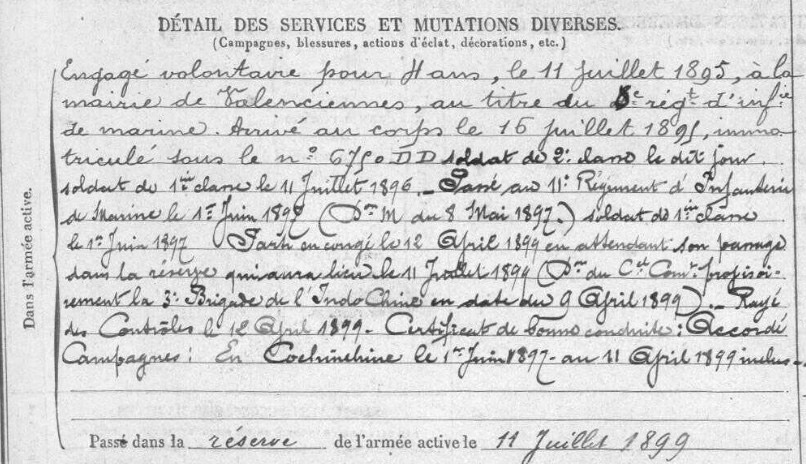 DÉTAIL DES SERVICES ET MUTATIONS DIVERSES.
(Campagnes, blessures, actions d'éclat, décorations, etc.)
Engagé volontaire pour 4 ans, le 11 Juillet 1895, à la
mairie de Valenciennes, au titre du régt d'infie
de marine. Arrivé au corps le 16 juillet 1895, imma
triculé sous le no 6750 DD soldat de 2e classe le dit jour
soldat de 1ère classe le 11 Juillet 1896. _ Passé au 11e Régiment d'Infanterie
de Marine le 1er Juin 1897 (Don M du 8 Mai 1897.) soldat de 1ère classe
le 1er Juin 1897 Parti en congé le 12 April 1899 en attendant son passage
dans la réserve qui aura lieu le 11 Juillet 1899 (Don du Ct Comt provisoi-
rement la 3e Brigade de l'Indo Chine en date du 9 April 1899) _ Rayé
des Contrôles le 12 April 1899 - Certificat de bonne conduite : Accordé
Campagnes : En Cochinchine le 1er Juin 1897 - au 11 April 1899 inclus -
Dans l'armée active.
Passé dans la réserve de l'armée active le 11 Juillet 1899